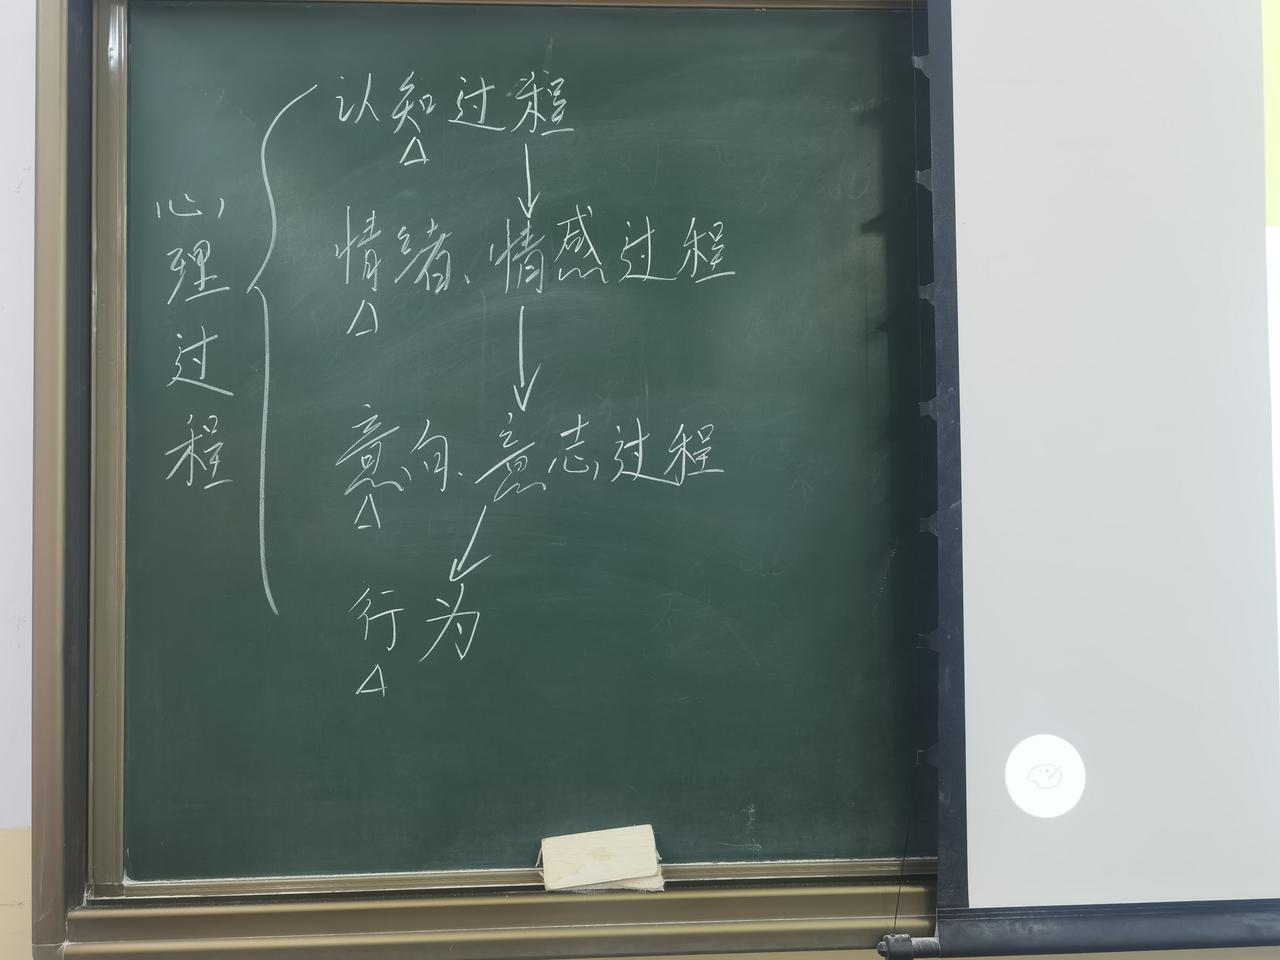 心理过程
认知过程
情绪、情感过程
意向、意志过程
行为